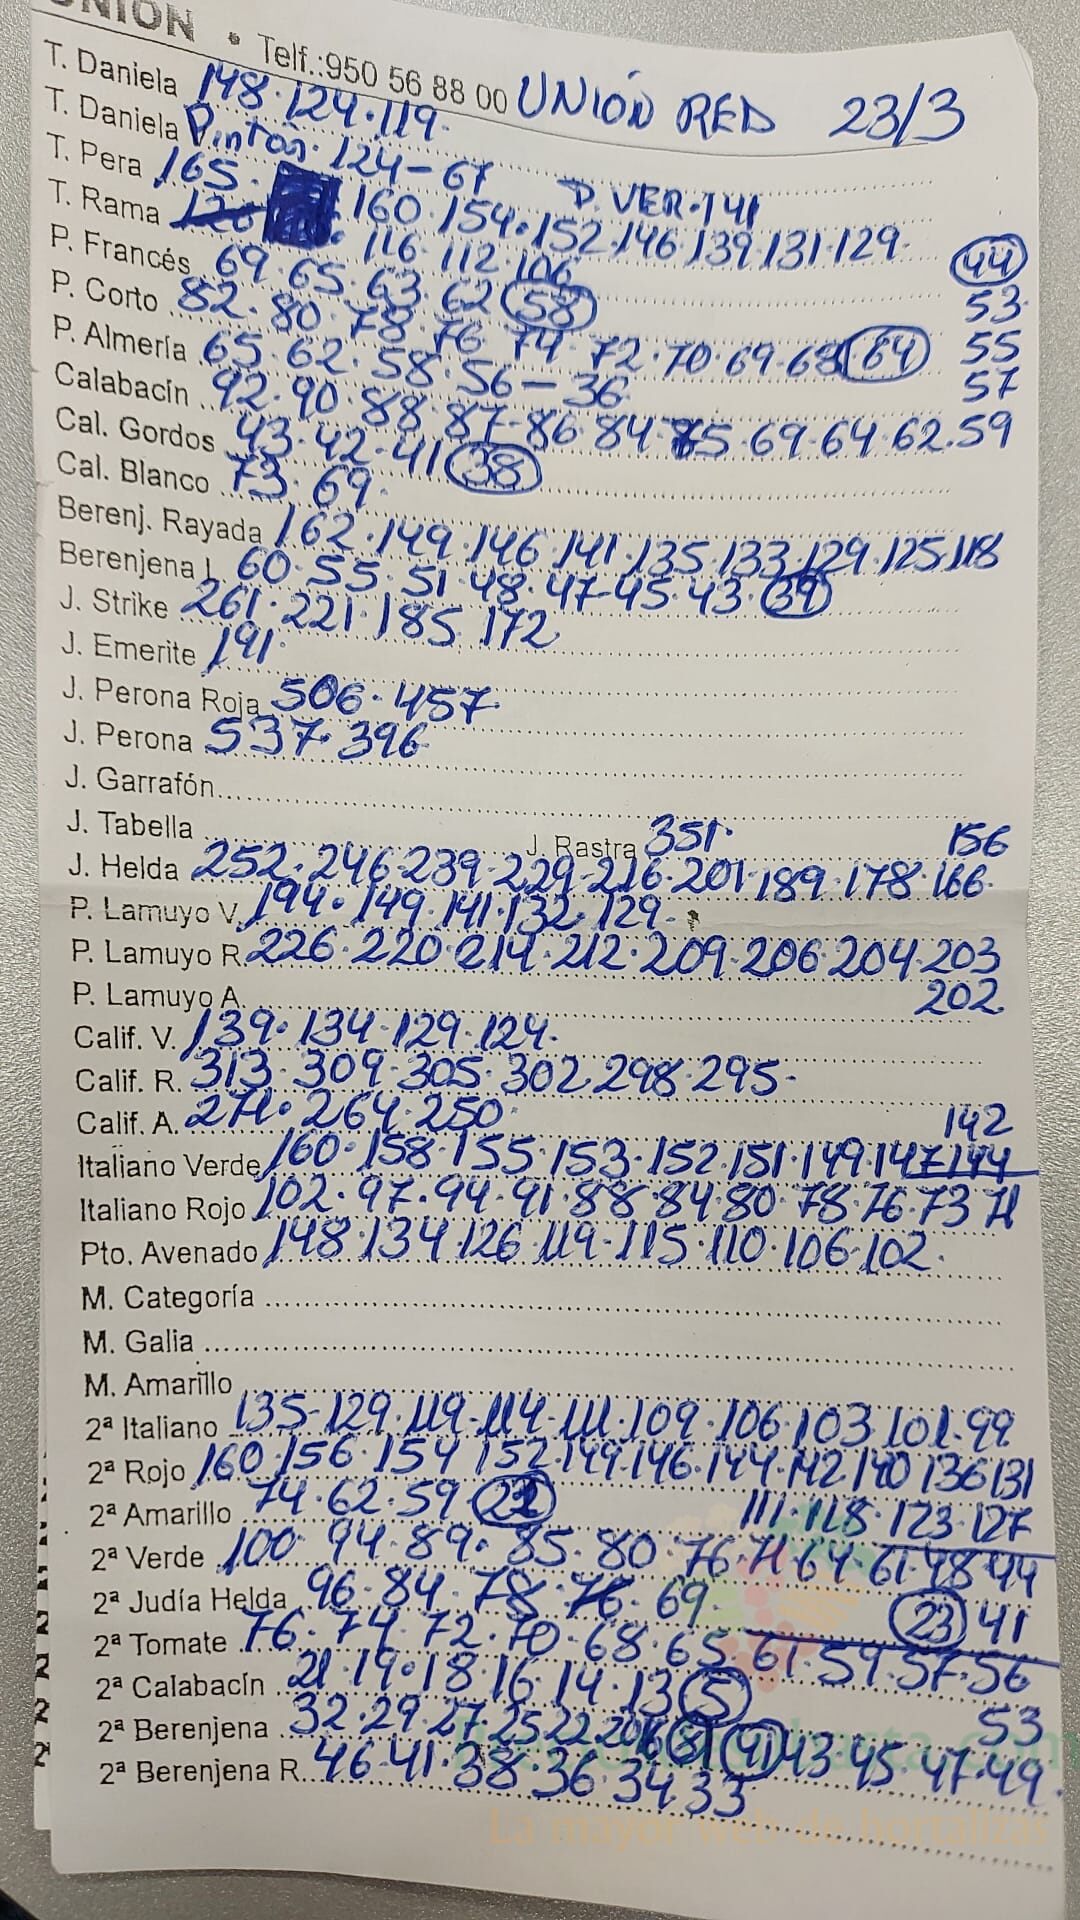 UNIÓN • Telf.:950 56 88 00 UNIÓN RED 23/3
T. Daniela 148·124·119·
T. Daniela Pintón·124-67
T. Pera 165· D. VER·141
160·154·152·146·139·131·129
T. Rama 116·112·106 44
P. Francés 69·65·63·62 58 53
P. Corto 82·80·78·76·74·72·70·69·68 64 55
P. Almería 65·62·58·56-36 57
Calabacín 92·90·88·87-86·84· 69·64·62·59
Cal. Gordos 43·42·41 38
Cal. Blanco 73·69·
Berenj. Rayada 162·149·146·141·135·133·129·125·118
Berenjena L 60·55·51·48·47-45·43·39
J. Strike 261·221·185·172
J. Emerite 191·
J. Perona Roja 506·457·
J. Perona 537·396
J. Garrafón
J. Tabella J. Rastra 351· 156
J. Helda 252·246·239-229-216·201·189·178·166·
P. Lamuyo V. 194·149·141·132·129·
P. Lamuyo R. 226·220·214·212·209·206·204·203
P. Lamuyo A. 202
Calif. V. 139·134·129·124·
Calif. R. 313·309·305·302·298·295·
Calif. A. 271·264·250· 142
Italiano Verde 160·158·155·153·152·151·149·147·144
Italiano Rojo 102·97·94·91·88·84·80·78·76·73·71
Pto. Avenado 148·134·126·119-115·110·106·102·
M. Categoría
M. Galia
M. Amarillo
2ª Italiano 135-129·119·114·111·109·106·103·101·99
2ª Rojo 160·156·154·152·149·146·144·142·140·136·131
2ª Amarillo 74·62·59 111·118·123·127
2ª Verde 100·94·89·85·80·76·71·64·61·48·44
2ª Judía Helda 96·84·78·76·69· 23 41
2ª Tomate 76·74·72·70·68·65·61·59·57·56
2ª Calabacín 21·19·18·16·14·13 5 53
2ª Berenjena 32·29·27·25·22 41 43·45·47·49·
2ª Berenjena R. 46·41·38·36·34·33
La mayor web de hortalizas